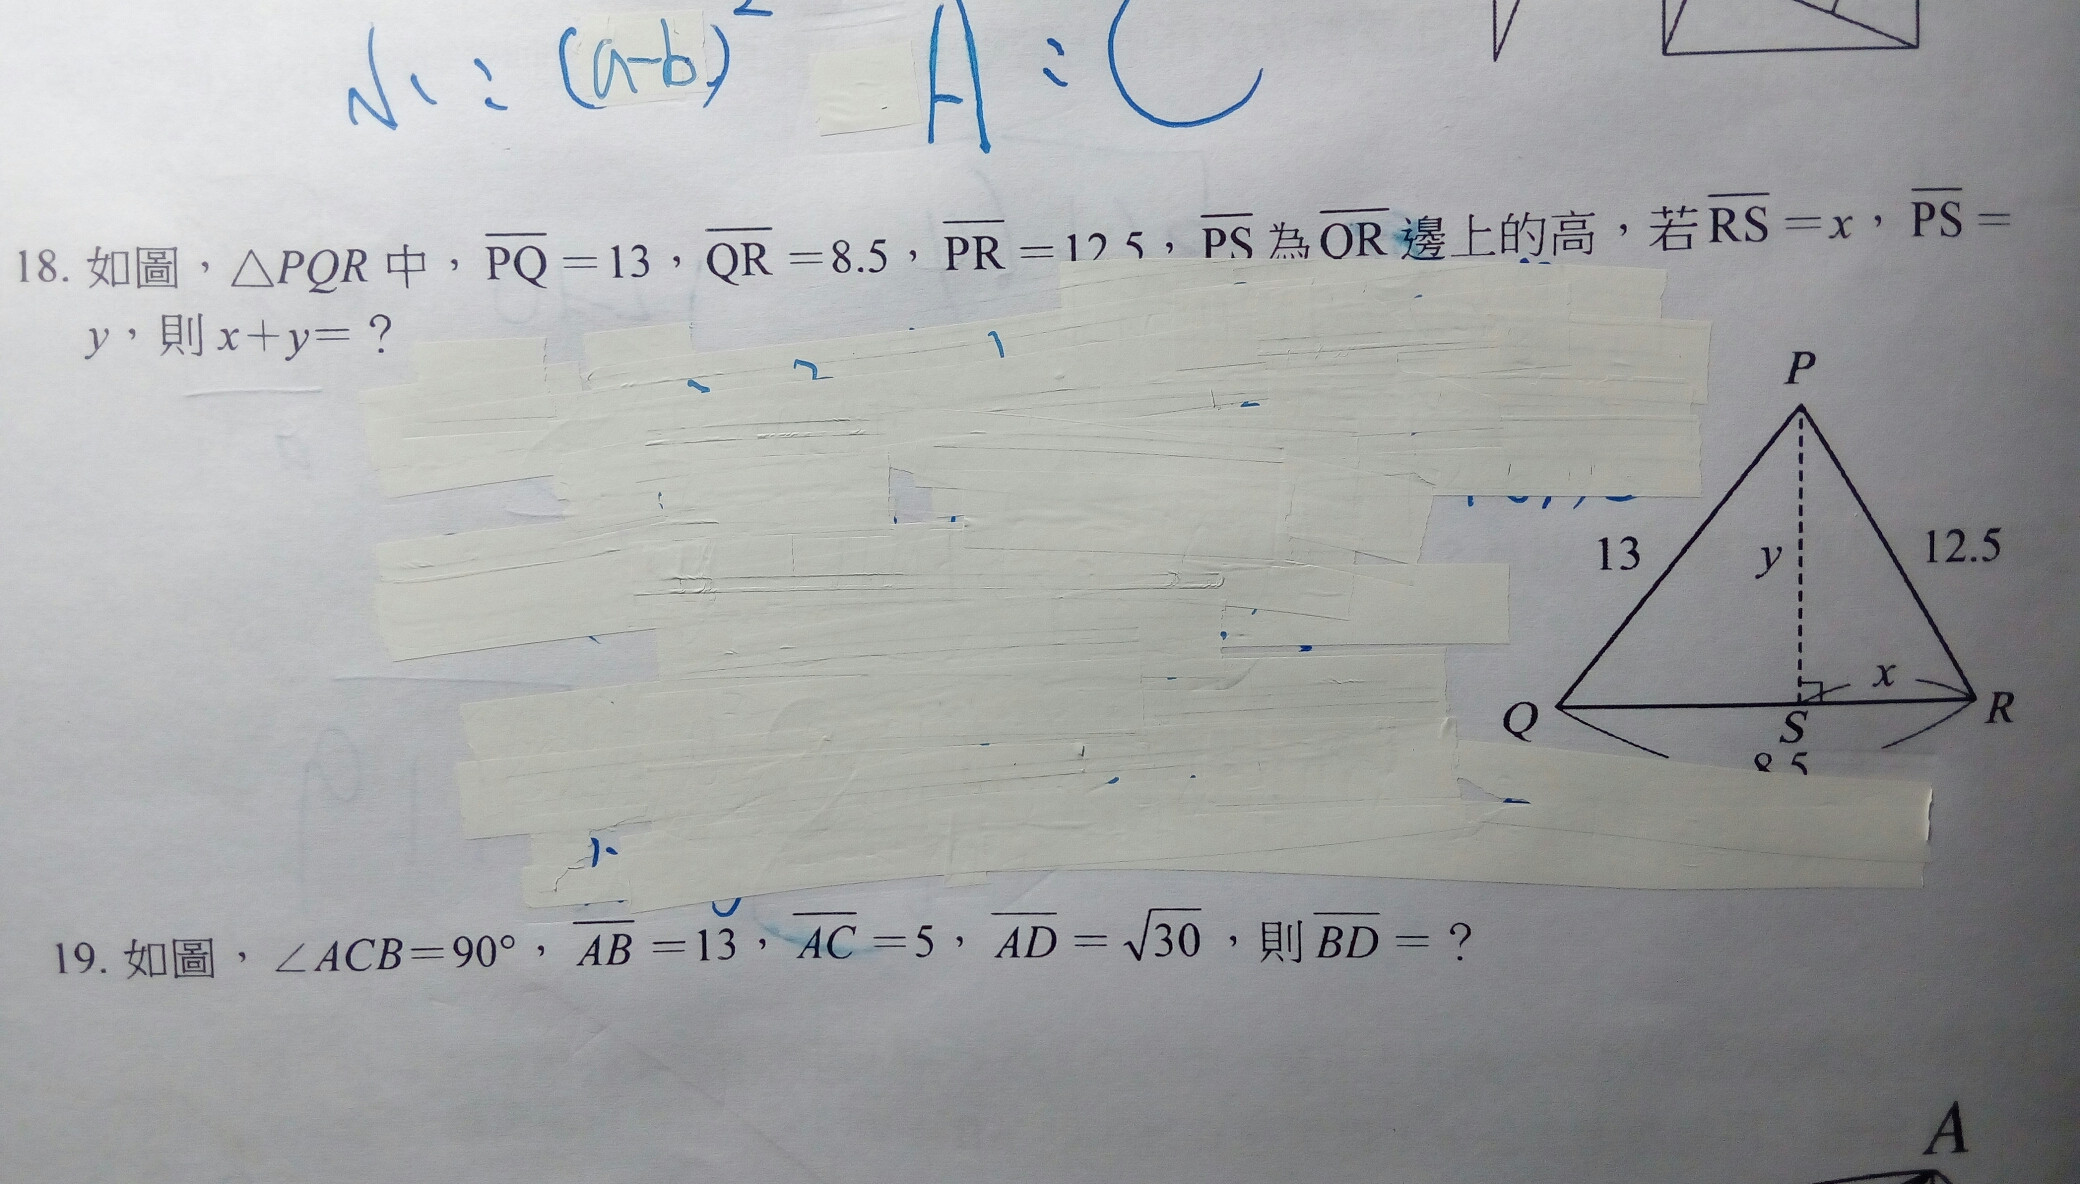 (a-b)²
A : C
18. 如圖，△PQR 中，PQ＝13，QR＝8.5，PR＝12.5，PS 為 QR 邊上的高，若 RS＝x，PS＝
y，則 x＋y＝？
P
13
y
12.5
x
Q
S
R
8.5
19. 如圖，∠ACB＝90°，AB＝13，AC＝5，AD＝√30，則 BD＝？
A